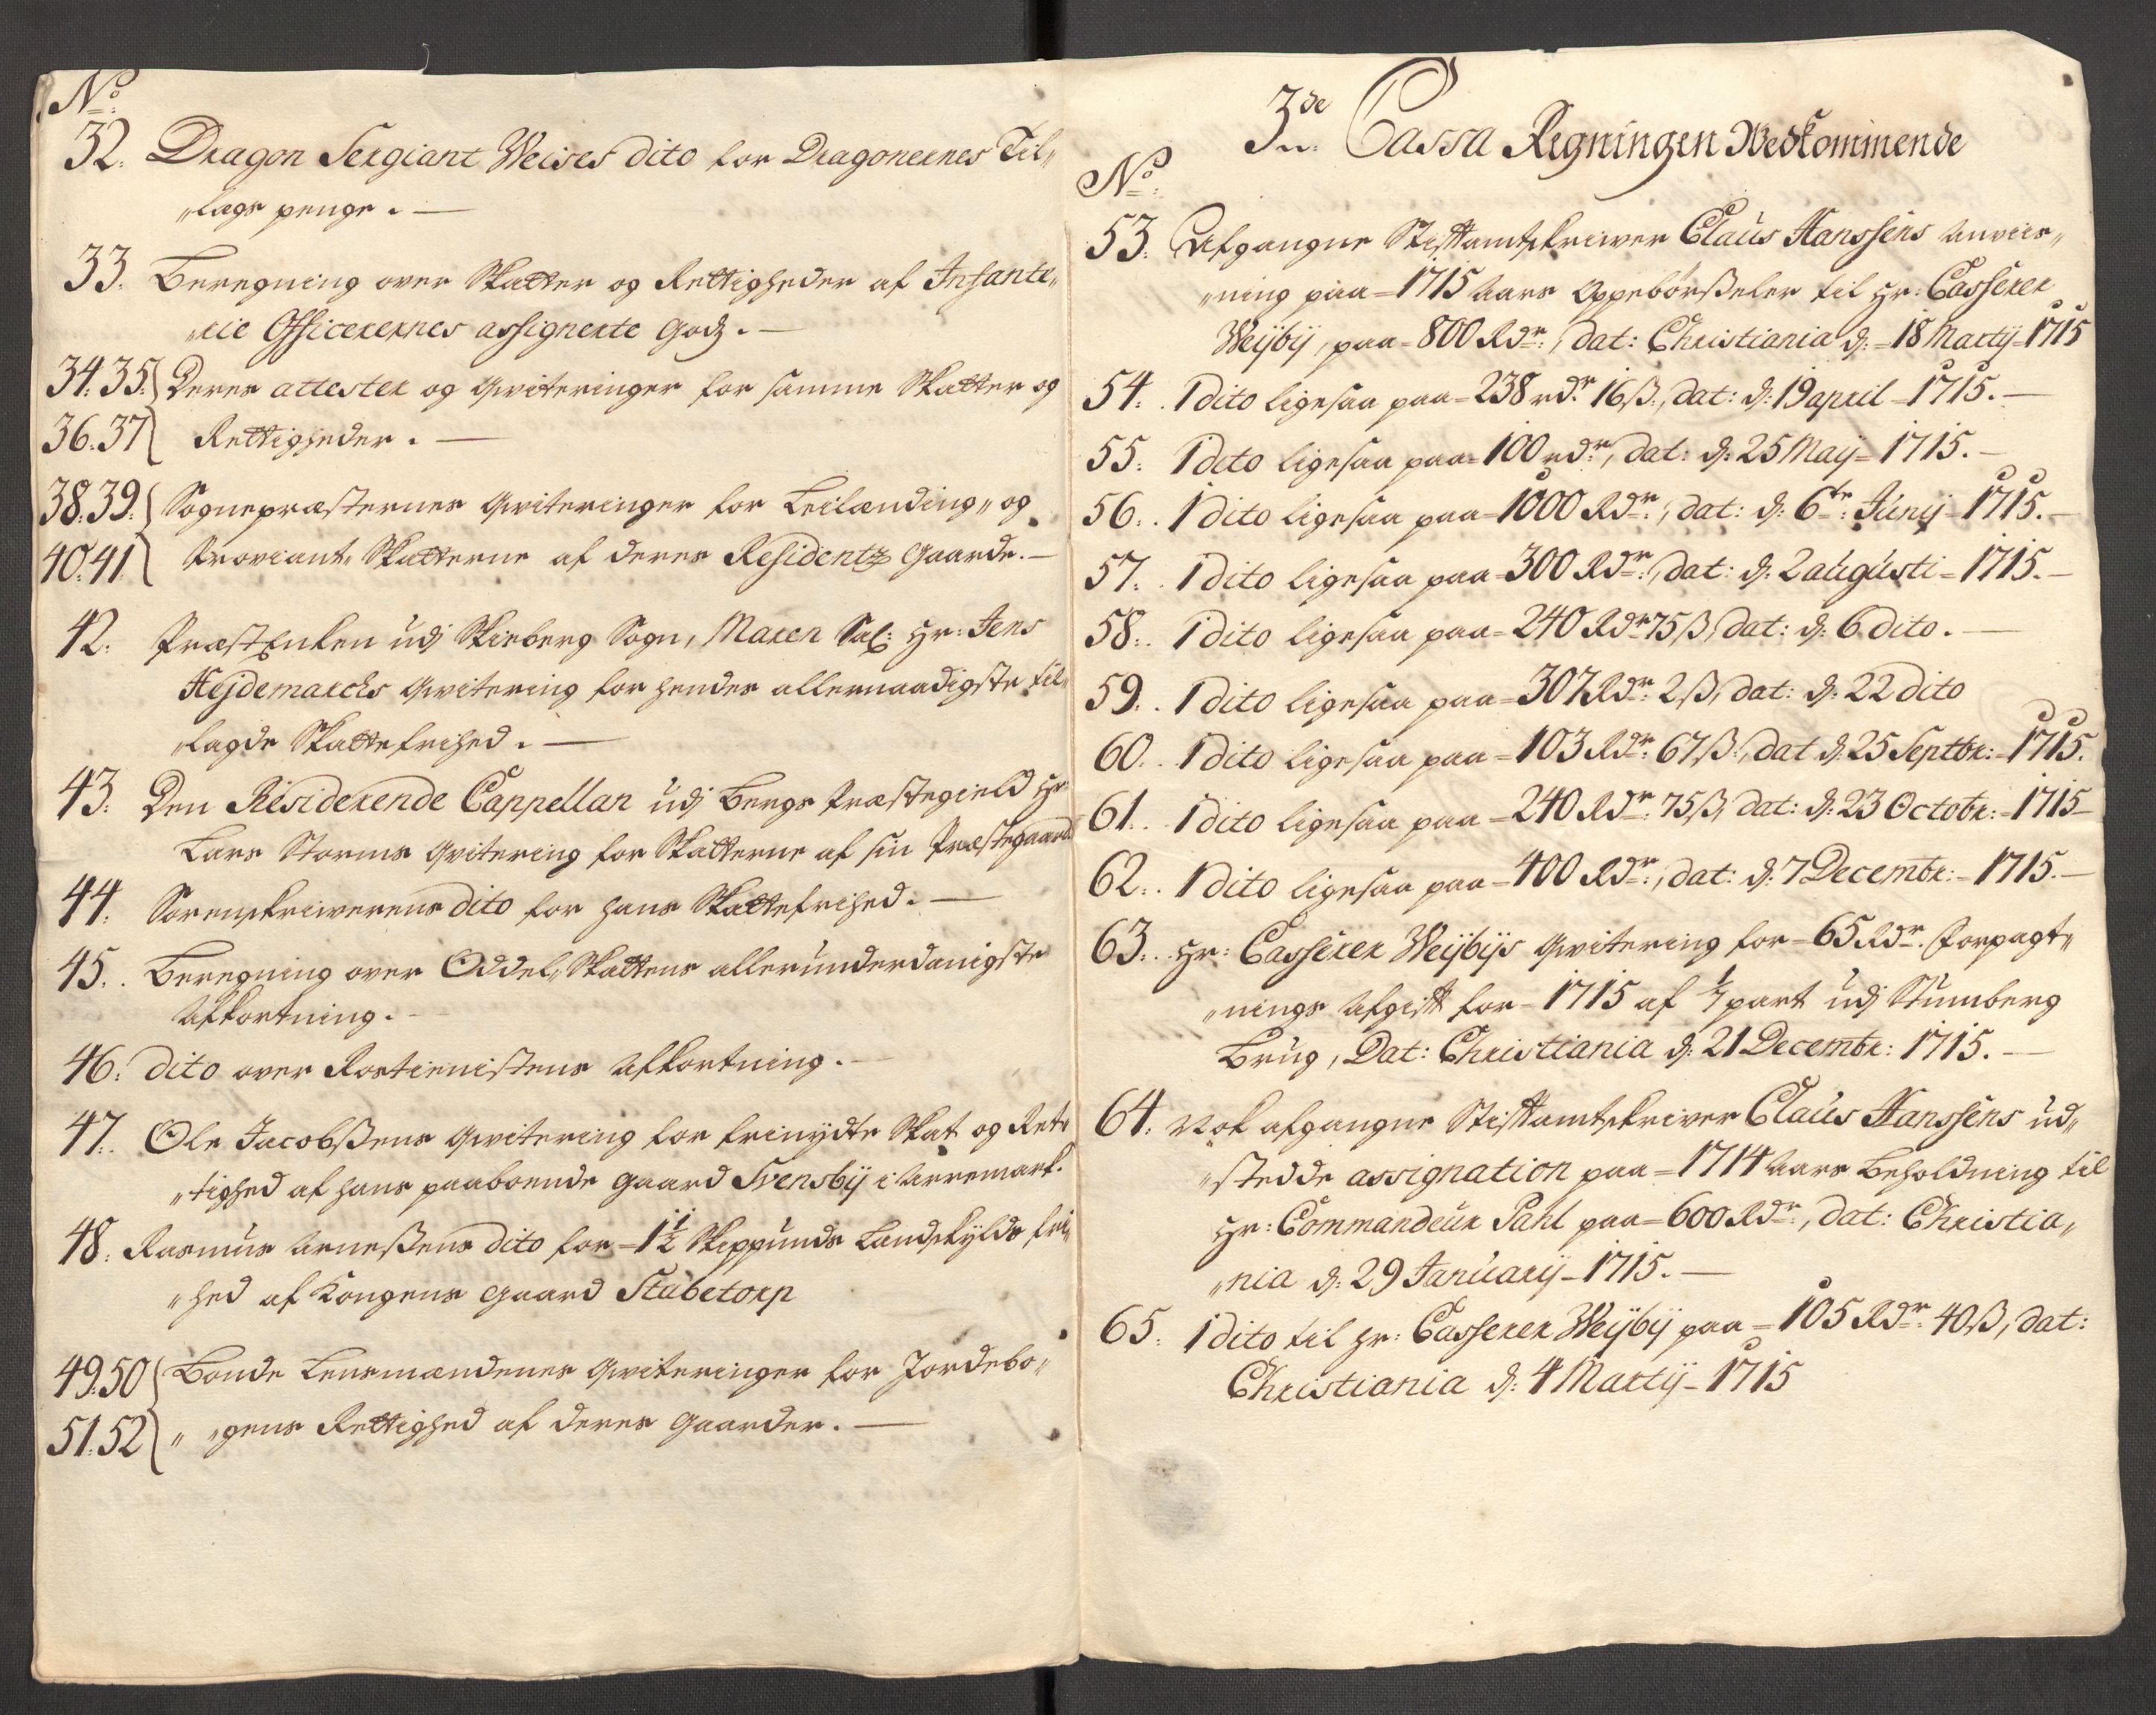 No:
32. Dragon Sergiant Weises dito for Dragonernes Til„
„lags penge. —
33. Beregning over Skatter og Rettigheder af Infante„
„rie Officerernes assignerte Godz. —
34. 35. Deres attester og Qviteringer for samme Skatter og
36. 37 Rettigheder. —
38. 39. Sognepræsternes Qviteringer for Leilænding„ og
40. 41 Proviant„ Skatterne af deres Residentz Gaarde. —
42. PræstEnken udj Skieberg Sogn, Maren Sal: Hr: Jens
Hejdemarchs Qvitering for hendes allernaadigste til„
„lagde Skattefrihed. —
43. Den Residerende Cappellan udj Bergs Præstegield Hr
Lars Storms Qvitering for Skatterne af sin Præstegaard
44. Sorenskriwerens dito for hans Skattefrihed. —
45. Beregning over Oddel„ Skattens allerunderdanigste
Afkortning. —
46. dito over Rostienistens Afkortning. —
47. Ole Jacobßens Qvitering for frinydte Skat og Ret„
„tighed af hans paaboende Gaard Svensbÿ i Arremark.
48. Rasmus Arneßens dito for - 1½ Skippunds Landskylds fri„
„hed af Kongens Gaard Stabetorp
49. 50 Bonde Lensmændenes Qviteringer for Jordebo„
51. 52 „gens Rettighed af deres Gaarder. —
3de Cassa Regningen Wedkommende
No:
53. Afgangne Stiftamtskriwer Claus Hanssens Anviis„
„ning paa = 1715 Aars Oppebørßeler til Hr: Casserer
Weÿbÿ, paa = 800 Rdr:, dat: Christiania d: - 18 Martÿ - 1715
54. 1 dito ligesaa paa = 238 rdr 16 ß, dat: d: 19 april - 1715. —
55. 1 dito ligesaa paa = 100 rdr, dat: d: 25 Maÿ = 1715. —
56. 1 dito ligesaa paa = 1000 Rdr:, dat: d: 6te Junÿ - 1715. —
57. 1 dito ligesaa paa = 300 Rdr:, dat: d: 2 augusti = 1715. —
58. 1 dito ligesaa paa = 240 Rdr 75 ß, dat: d: 6 dito. —
59. 1 dito ligesaa paa = 307 Rdr: 2 ß, dat: d: 22 dito
60. 1 dito ligesaa paa = 103 Rdr: 67 ß, dat d: 25 Septbr: - 1715.
61. 1 dito ligesaa paa = 240 Rdr: 75 ß, dat: d: 23 Octobr: - 1715 -
62. 1 dito ligesaa paa = 400 Rdr:, dat: d: 7 Decembr: - 1715. —
63. Hr: Casserer Weÿbÿs Qvitering for = 65 Rdr. Forpagt„
„nings Afgift for - 1715 af 1/7 part udj Stumberg
Brug, Dat: Christiania d: 21 Decembr: 1715. —
64. Nok afgangne Stiftamtskriver Claus Hanssens ud„
„stedde assignation paa = 1714 Aars Beholdning til
Hr: Commandeur Pahl paa = 600 Rdr:, dat: Christia„
„nia d: 29 Januarÿ - 1715. —
65. 1 dito til Hr: Casserer Weÿbÿ paa = 105 Rdr: 40 ß, dat:
Christiania d: 4 Martÿ - 1715